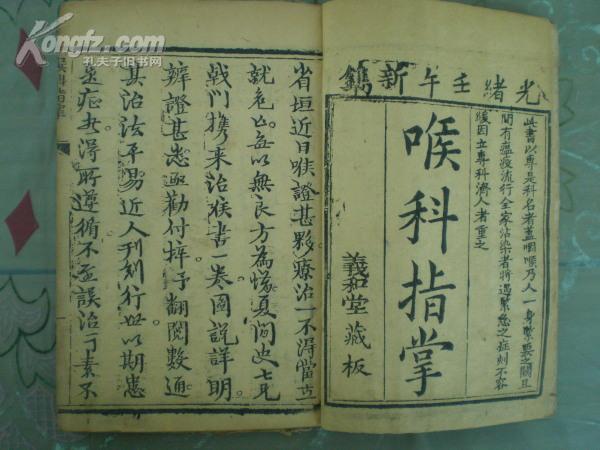 Kongfz.com
孔夫子旧书网
光緒壬午新鐫
此書以專是科名者蓋咽喉乃人一身緊要之關且
間有瘟疫流行全家沾染者將遇緊急之症刻不容
緩因立專科濟人者重之
喉科指掌
義和堂藏板
省垣近日喉證甚夥療治一不得當立
就危亡每以無良方為憾夏間史七兄
戟門携来治喉書一卷圖説詳明
辨證甚悉亟勸付梓予翻閲數通
其治法平易近人刊刻行世以期患
斯症者得所遵循不至誤治丁素不